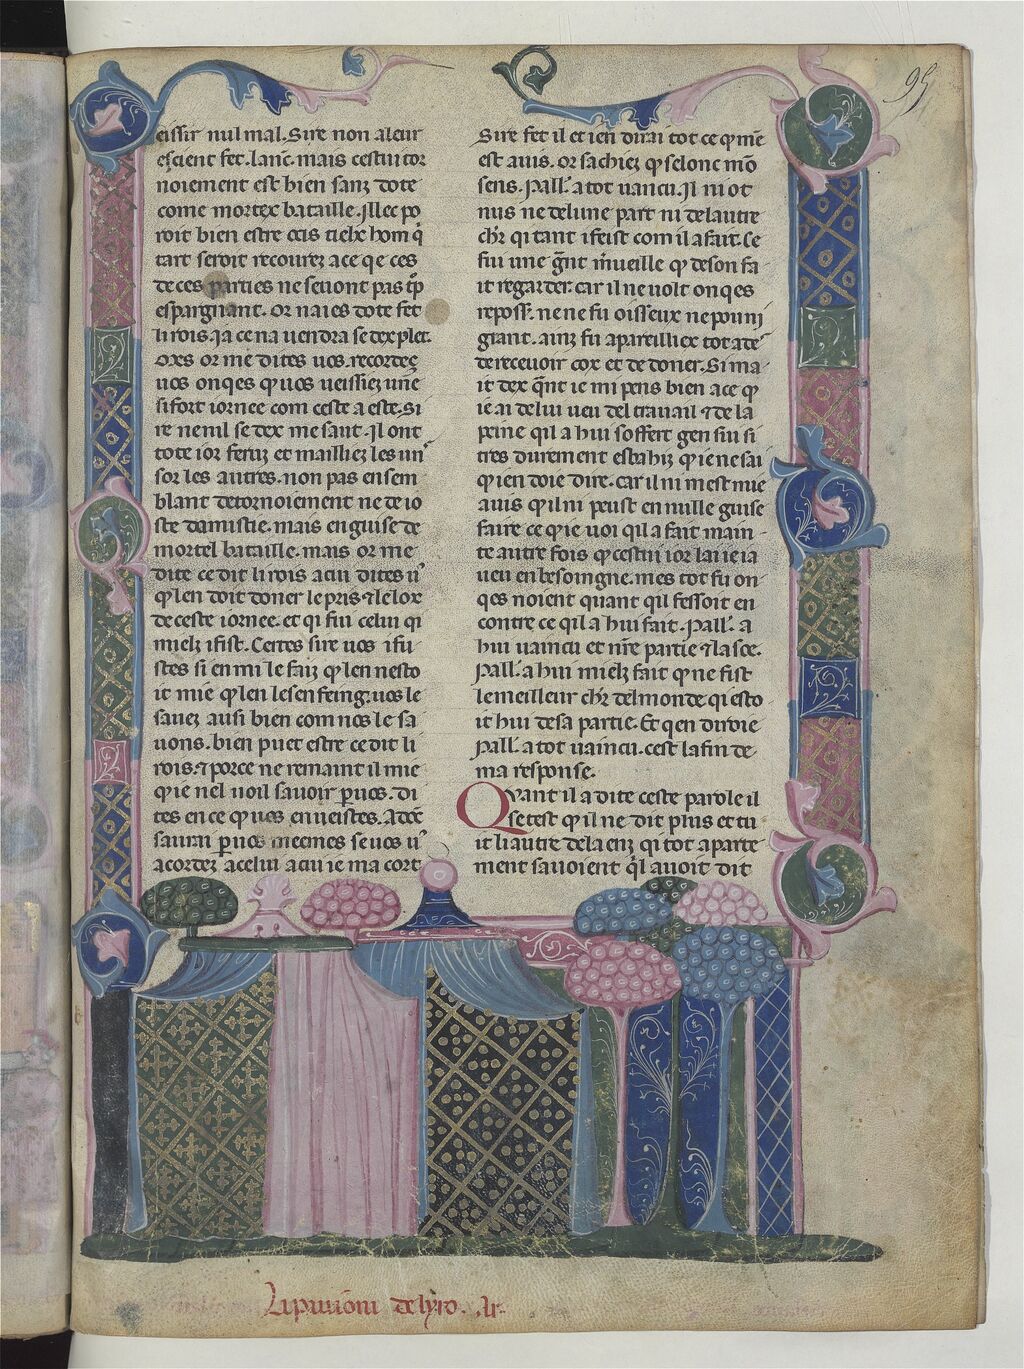 95
eissir nul mal. Sire non a leur
escient fet. lanc̃. mais cestui tor
noiement est bien sanz dote
come mortex bataille. Illec po
roit bien estre ocis tielx hom q̃
tart seroit recourez a ce qe ces
de ces parties ne se uont pas tp̃
espargnant. Or naies dote fet
li rois. ja ce na uendra se dex plet.
Oxs or me dites uos recordez
uos onqes q̃ uos ueissiez une
si fort iornee com ceste a este. Si
re nenil se dex me saut. Il ont
tote ior feruz et mailliez les un͛
sor les autres. non pas en sem
blant de tornoiement ne de io
ste damistie. mais en guise de
mortel bataille. mais or me
dite ce dit li rois a cui dites u͛
q̃ len doit doner le pris ⁊ le lox
de ceste iornee. et qi fu celui qi
mielz i fist. Certes sire uos i fu
stes si en mi le faiz q̃ len nesto
it mie q̃ len les en feing. uos le
sauez ausi bien com nos le sa
uons. bien puet estre ce dit li
rois. ⁊ por ce ne remaint il mie
q̃ ie nel uoil sauoir p̱ uos. di
tes en ce q̃ uos en ueistes. adõc
saurai p̱ uos meemes se uos u͛
acordez a celui a cui ie ma cort
Sire fet il et ien dirai tot ce q̃ mẽ
est auis. or sachiez q̃ selonc mõ
sens. Pall̃. a tot uancu. Il ni ot
nus ne de lune part ni de lautre
ch̃r qi tant i feist com il a fait. Ce
fu une g̃nt m̃ueille q̃ de son fa
it regarder. car il ne uolt onqes
repos͛. ne ne fu oisseux ne po ni
grant. ainz fu apareillie tot ade͛
de receuoir cox et de doner. Si ma
it dex q̃nt ie mi pens bien a ce q̃
ie ai de lui ueu del trauail ⁊ de la
peine qil a hui soffert gen sui si
tres durement esbahiz q̃ ie ne sai
q̃ ien doie dire. car il ni mest mie
auis q̃ il ni peust en nulle guise
faire ce q̃ ie uoi qil a fait main
te autre fois q̃ cestui ior lai ie ia
ueu en besoingne. mes tot fu on
qes noient quant qil fessoit en
contre ce qil a hui fait. Pall̃. a
hui uaincu et nr̃e partie ⁊ la soe.
Pall̃. a hui mielz fait q̃ ne fist
le meilleur ch̃r del monde. qi esto
it hui de sa partie. Et qen diroie
Pall̃. a tot uaincu. cest la fin de
ma response.
Qvant il a dite ceste parole il
se test q̃ il ne dit plus et tu
it li autre de laenz qi tot aparte
ment sauoient q̃l auoit dit